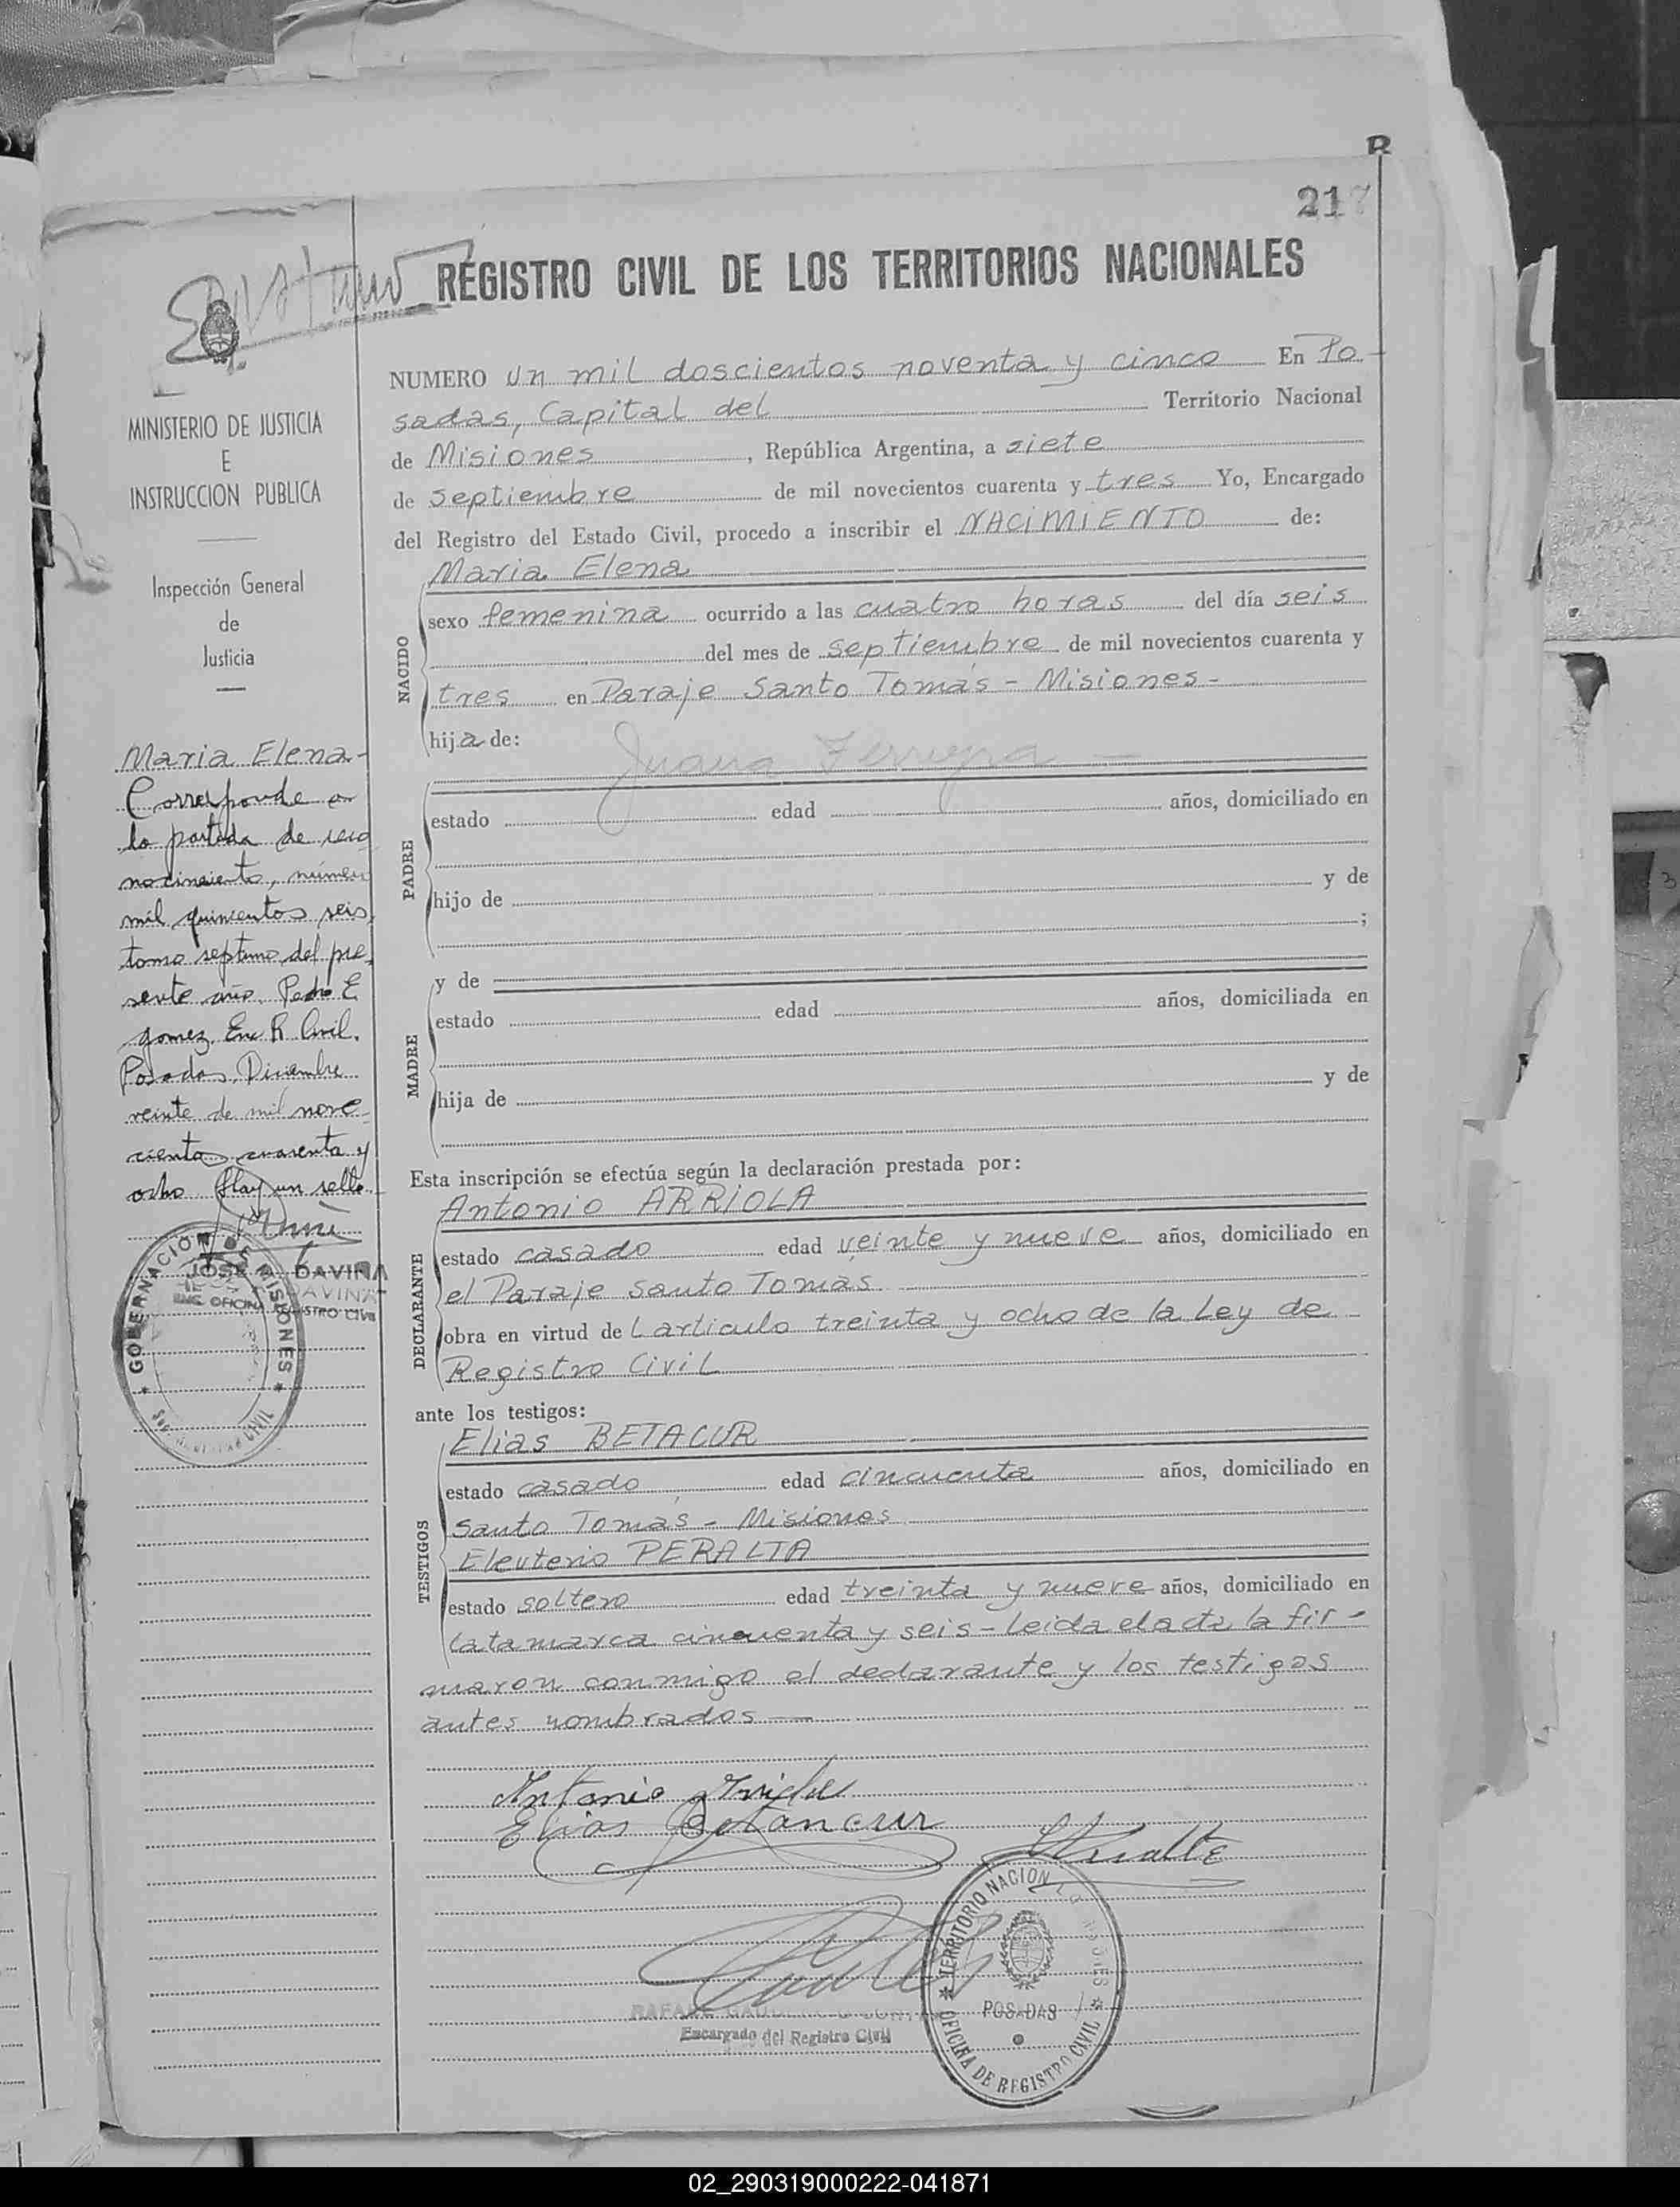 R
217
REGISTRO CIVIL DE LOS TERRITORIOS NACIONALES
MINISTERIO DE JUSTICIA
E
INSTRUCCION PUBLICA
Inspección General
de
Justicia
Maria Elena-
Corresponde a
la partida de reco
nocimiento, número
mil quinientos seis,
tomo septimo del pre-
sente año. Pedro E
gomez. Enc R Civil.
Posadas, Diciembre
veinte de mil nove-
cientos cuarenta y
ocho Hay un sello
GOBERNACION DE MISIONES
JOSE A. DAVIÑA
ENC. OFICINA REGISTRO CIVIL
NUMERO un mil doscientos noventa y cinco En Po-
sadas, Capital del Territorio Nacional
de Misiones, República Argentina, a siete
de septiembre de mil novecientos cuarenta y tres Yo, Encargado
del Registro del Estado Civil, procedo a inscribir el NACIMIENTO de:
Maria Elena
NACIDO
sexo femenina ocurrido a las cuatro horas del día seis
del mes de septiembre de mil novecientos cuarenta y
tres en Paraje Santo Tomás - Misiones -
hija de: Juana Ferreyra
PADRE
estado edad años, domiciliado en
hijo de y de
;
y de
MADRE
estado edad años, domiciliada en
hija de y de
Esta inscripción se efectúa según la declaración prestada por:
Antonio ARRIOLA
DECLARANTE
estado casado edad veinte y nueve años, domiciliado en
el Paraje Santo Tomás
obra en virtud del articulo treinta y ocho de la Ley de
Registro Civil
ante los testigos:
Elias BETACUR
TESTIGOS
estado casado edad cincuenta años, domiciliado en
Santo Tomás - Misiones
Eleuterio PERALTA
estado soltero edad treinta y nueve años, domiciliado en
Catamarca cincuenta y seis - Leida el acta la fir-
maron conmigo el declarante y los testigos
antes nombrados
Antonio Arriola
Elias Betancur
TERRITORIO NACIONAL MISIONES
POSADAS
OFICINA DE REGISTRO CIVIL
RAFAEL
Encargado del Registro Civil
02_290319000222-041871